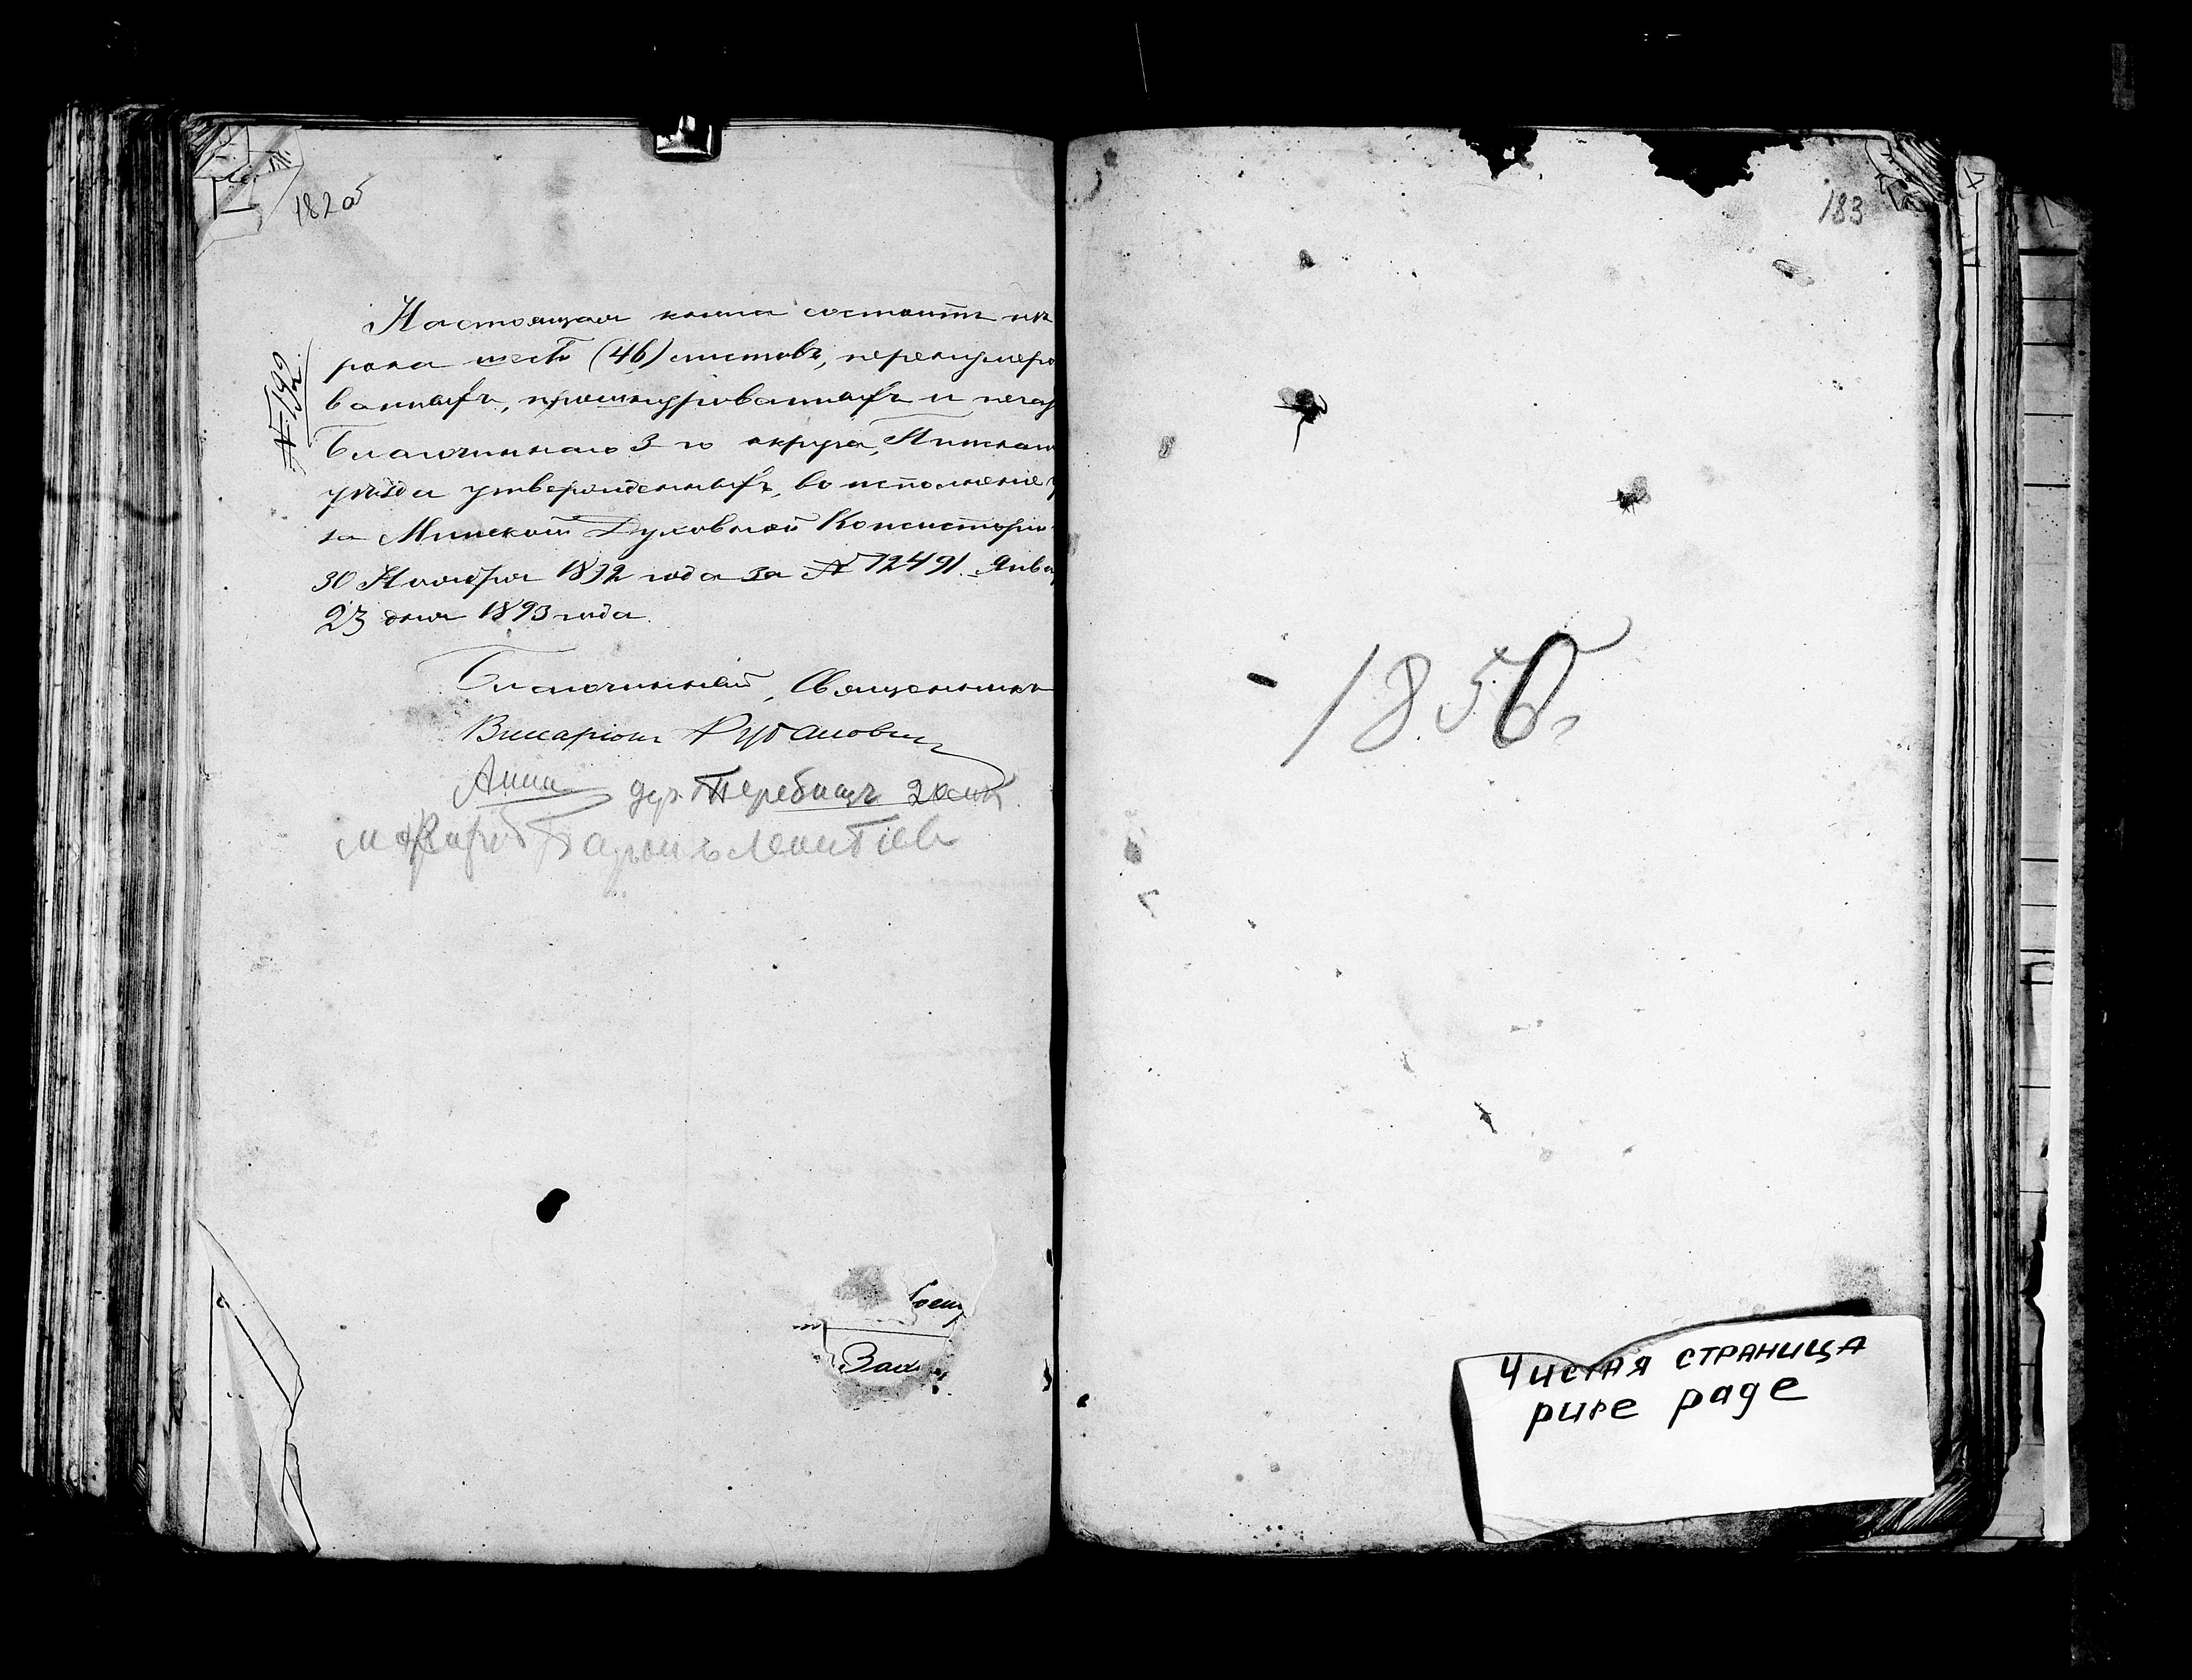 182об
№ 192.
Настоящая книга состоитъ изъ
рока шести (46) листовъ, перенумеро
ванныхъ, прошнурованныхъ и печа
Благочиннаго 3-го округа, Пинскаго
уѣзда утвержденныхъ, во исполненіе у
за Минской Духовной Консисторіи
30 Ноября 1892 года за № 12491. Янва
23 дня 1893 года.
Благочинный, Священникъ
Виссаріонъ
Анна
Зах
183
1850
Чистая страница
pure page